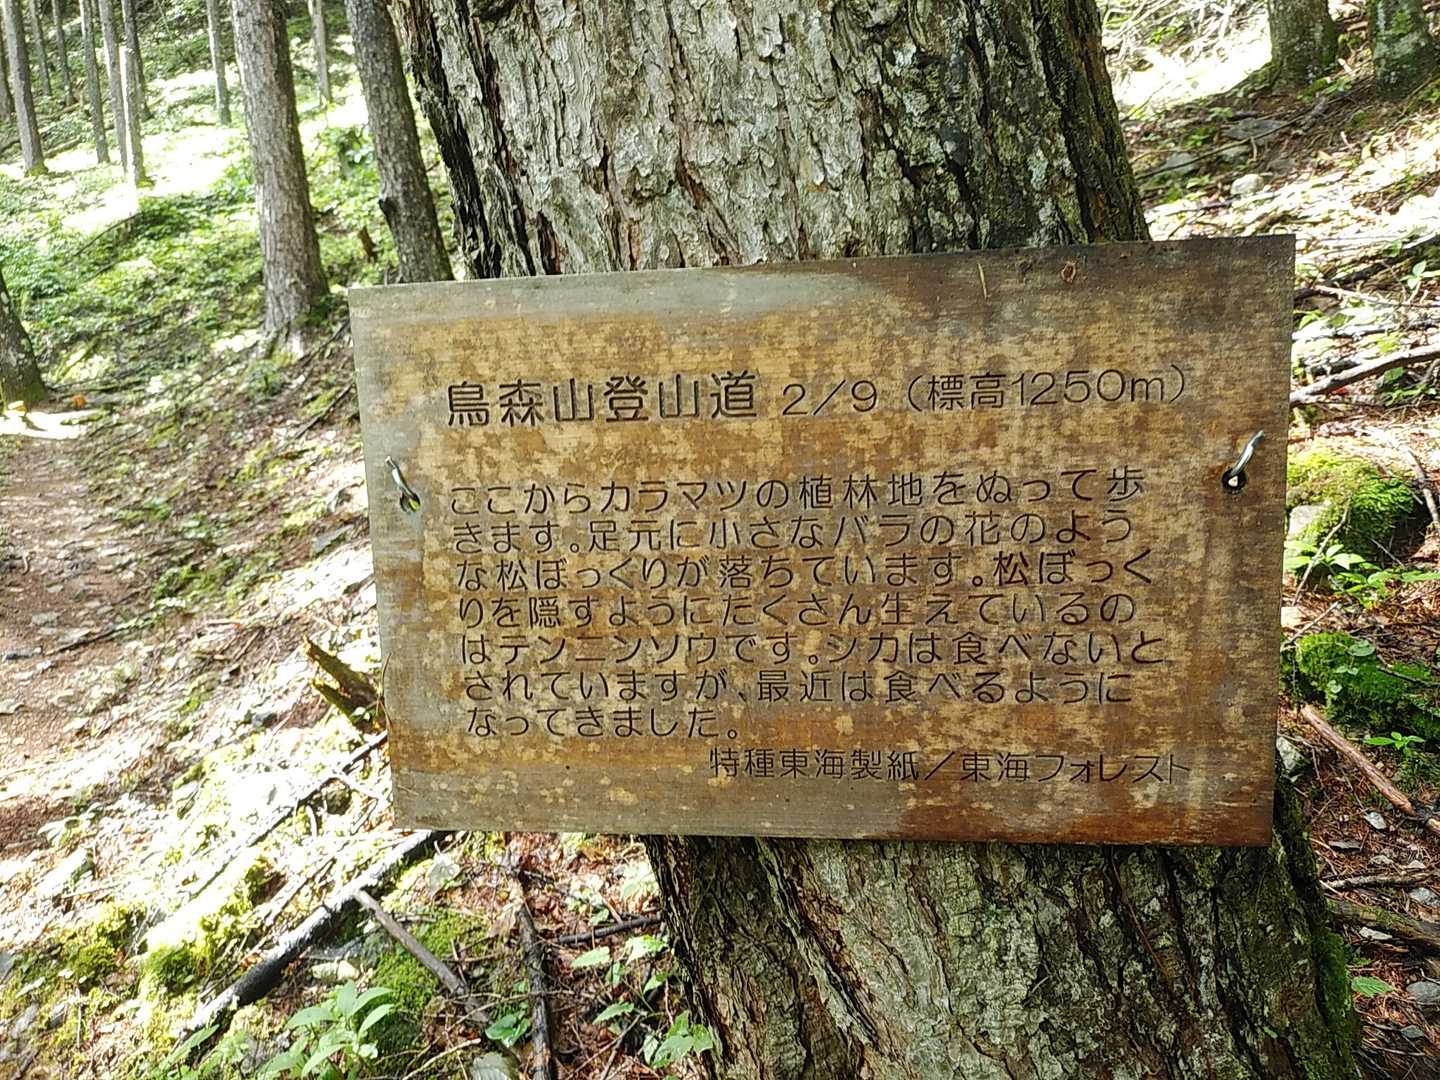 鳥森山登山道 2/9（標高1250m）
ここからカラマツの植林地をぬって歩
きます。足元に小さなバラの花のよう
な松ぼっくりが落ちています。松ぼっく
りを隠すようにたくさん生えているの
はテンニンソウです。シカは食べないと
されていますが、最近は食べるように
なってきました。
特種東海製紙／東海フォレスト